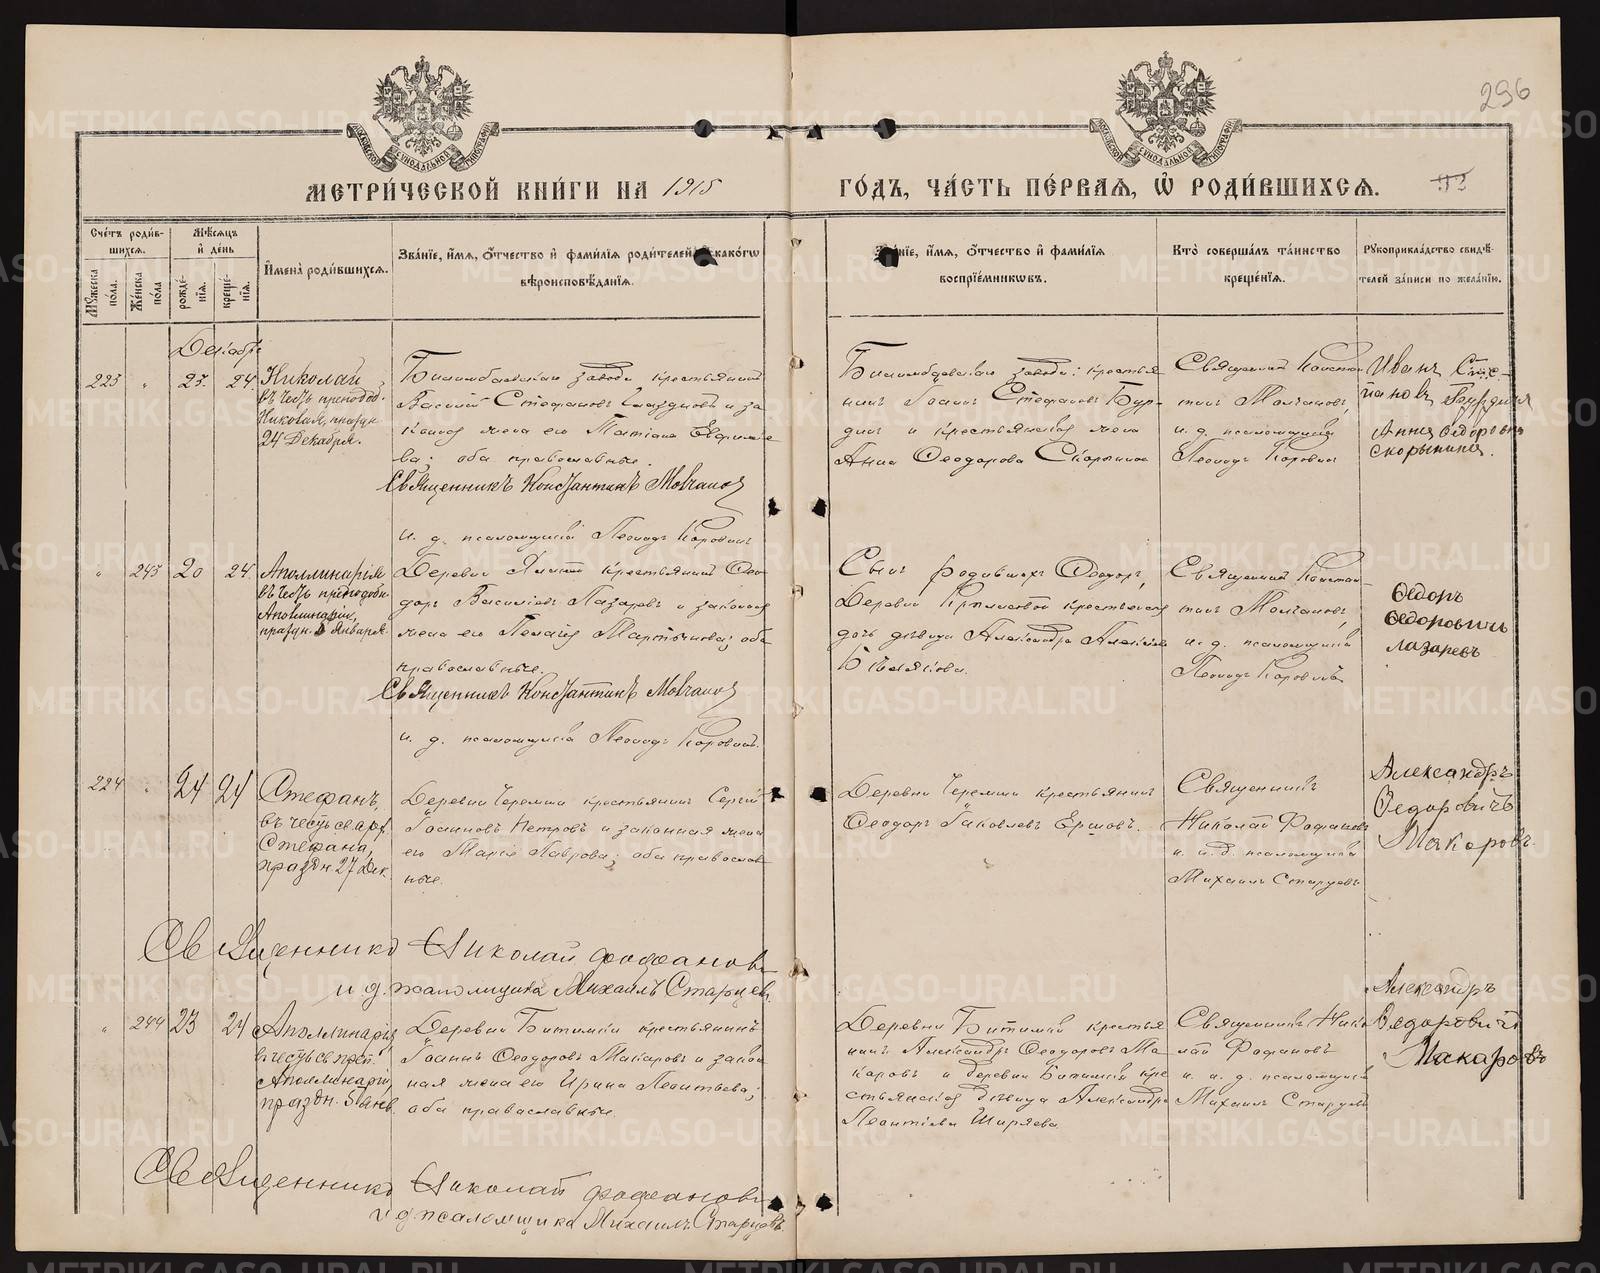 296
МЕТРИ́ЧЕСКОЙ КНИ́ГИ НА 1915
ГО́ДЪ, ЧА́СТЬ ПЕ́РВАѦ, Ѡ҆ РОДИ́ВШИХСѦ.
Сче́тъ роди́в-
шихсѧ.
Мѣ́сѧцъ
и҆ де́нь
Мꙋ́жеска по́ла.
Же́нска по́ла
рожде́-
нїѧ.
креще́-
нїѧ.
И҆мена̀ роди́вшихсѧ.
Зва́нїе, и҆́мѧ, ѻ҆́тчество и҆ фами́лїѧ роди́телей како́гѡ
вѣроисповѣ́данїѧ.
Зва́нїе, и҆́мѧ, ѻ҆́тчество и҆ фами́лїѧ
воспрїе́мникѡвъ.
Кто̀ соверша́лъ та́инство
креще́нїѧ.
Рꙋкоприкла́дство свидѣ́-
телей за́писи по жела́нїю.
Декабрь
223 " 23. 24.
Николай
въ честь преподоб.
Николая, праздн.
24 Декабря.
Билимбаевскаго завода крестьянинъ
Василій Стефановъ и за
конная жена его Татіана Евфиміе
ва; оба православные.
Священникъ Константинъ Молчановъ
и. д. псаломщика Леонидъ Коровинъ
Билимбаевскаго завода: крестья
нинъ Іоаннъ Стефановъ Бур-
динъ и крестьянская жена
Анна Ѳеодорова Скорынина
Священникъ Констан
тинъ Молчановъ,
и. д. псаломщика
Леонидъ Коровинъ
Иванъ Сте-
пановъ Бурдинъ
Анна Ѳедоровна
Скорынина.
" 243 20 24.
Аполлинарія
въ честь преподобн.
Аполлинаріи,
праздн. 5 Января.
Деревни крестьянинъ Ѳео
доръ Василіевъ Лазаревъ и законная
жена его Пелагія Мартынова; оба
православные.
Священникъ Константинъ Молчановъ
и. д. псаломщика Леонидъ Коровинъ.
Сынъ родившихъ Ѳеодоръ,
Деревни крестьянская
дочь дѣвица Александра Алексѣева
Священникъ Констан
тинъ Молчановъ,
и. д. псаломщика
Леонидъ Коровинъ
Ѳедоръ
Ѳедоровичъ
Лазаревъ
224 " 24 24
Стефанъ,
въ честь св. арх.
Стефана,
праздн 27 Дек
Деревни Черемши крестьянинъ Сергій
Іоанновъ Петровъ и законная жена
его Марія Лаврова; оба православ
ные.
Священникъ Николай Фофановъ
и д. псаломщика Михаилъ Старцевъ.
Деревни Черемши крестьянинъ
Ѳеодоръ Іаковлевъ Ершовъ.
Священникъ
Николай Фофановъ
и. д. псаломщика
Михаилъ Старцевъ
Александръ
Ѳедоровичъ
Макаровъ.
" 244 23 24
Аполлинарія
въ честь св. преп.
Аполлинаріи,
праздн. 5 Янв.
Деревни Битимки крестьянинъ
Іоаннъ Ѳеодоровъ Макаровъ и закон
ная жена его Ирина Леонтьева;
оба православные.
Священникъ Николай Фофановъ
и д псаломщика Михаилъ Старцевъ
Деревни Битимки крестья
нинъ Александръ Ѳеодоровъ Ма
каровъ и деревни Битимки кре
стьянская дѣвица Александра
Леонтіева Ширяева
Священникъ Нико
лай Фофановъ
и. д. псаломщика
Михаилъ Старцевъ
Александръ
Ѳедоровичъ
Макаровъ
METRIKI.GASO-URAL.RU